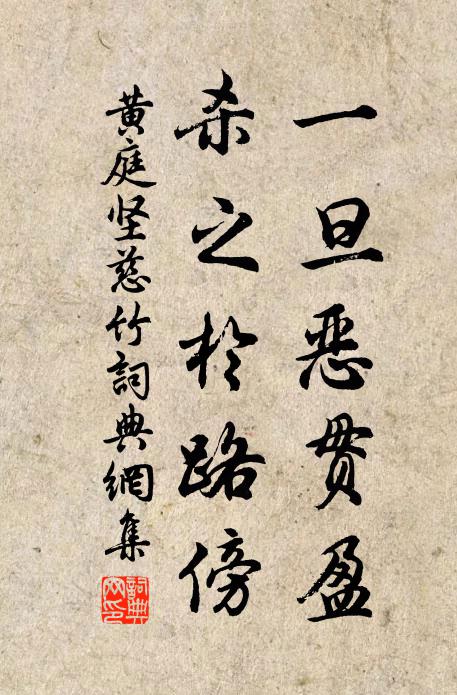 一旦恶贯盈
杀之於路傍
黄庭坚慈竹詞典網集
詞典
网印